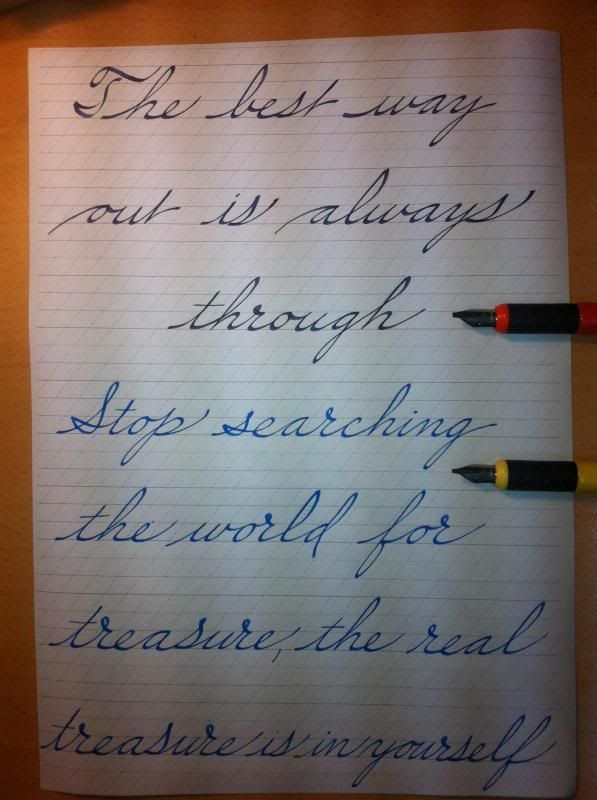 The best way
out is always
through
Stop searching
the world for
treasure, the real
treasure is in yourself